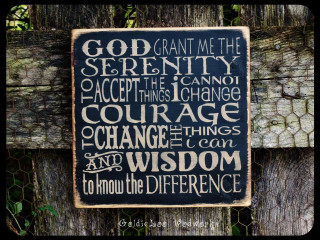 GOD GRANT ME THE
SERENITY
TO ACCEPT THE THINGS i CANNOT change
COURAGE
TO CHANGE THE THINGS i can
AND WISDOM
to know the DIFFERENCE